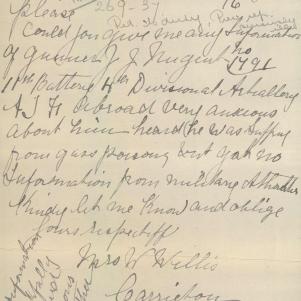 please
269-37
16
could you give me any information
of gunner J J Nugent no
1791
11th Battery 4th Divisional Artillery
A I F abroad Very anxious
about him heard he was suffering
from gass poisoning but got no
Information from military Athorities
kindly let me know and oblige
Yours respectiff
Mrs W Willis
Carrieton